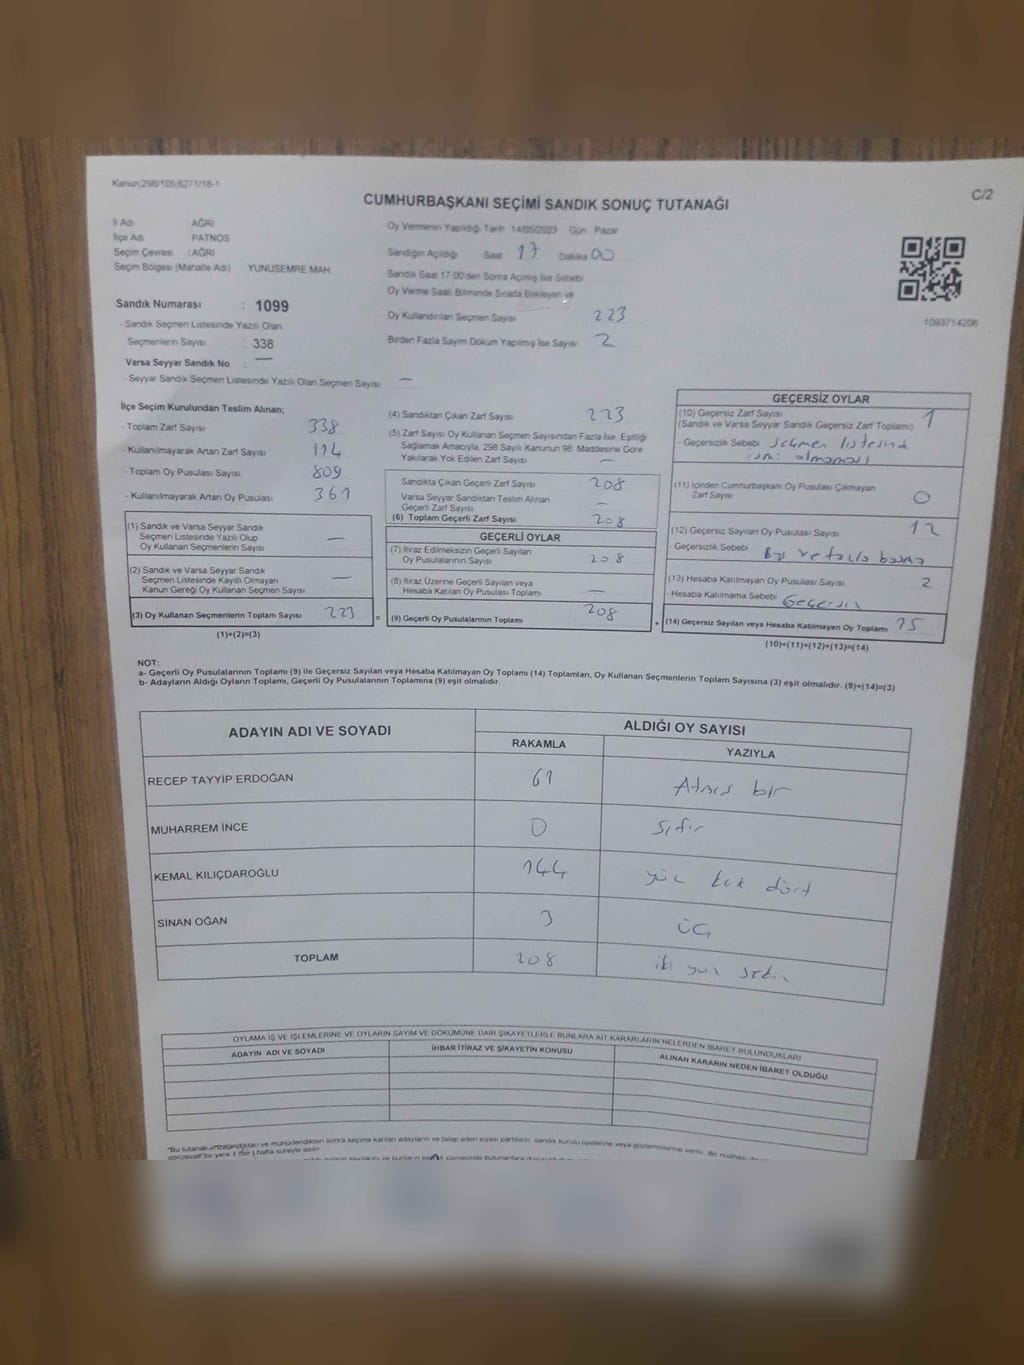 Kanun;298/105;6271/18-1
C/2
CUMHURBAŞKANI SEÇİMİ SANDIK SONUÇ TUTANAĞI
İl Adı AĞRI
İlçe Adı PATNOS
Seçim Çevresi : AĞRI
Seçim Bölgesi (Mahalle Adı) YUNUSEMRE MAH.
Oy Vermenin Yapıldığı Tarih 14/05/2023 Gün Pazar
Sandığın Açıldığı Saat 17 Dakika 00
Sandık Saat 17:00'den Sonra Açılmış İse Sebebi
Oy Verme Saati Bitiminde Sırada Bekleyen ve
Oy Kullandırılan Seçmen Sayısı 223
Birden Fazla Sayım Döküm Yapılmış İse Sayısı 2
1093714206
Sandık Numarası : 1099
- Sandık Seçmen Listesinde Yazılı Olan
Seçmenlerin Sayısı : 338
Varsa Seyyar Sandık No : —
- Seyyar Sandık Seçmen Listesinde Yazılı Olan Seçmen Sayısı —
İlçe Seçim Kurulundan Teslim Alınan;
- Toplam Zarf Sayısı 338
- Kullanılmayarak Artan Zarf Sayısı 114
- Toplam Oy Pusulası Sayısı 809
- Kullanılmayarak Artan Oy Pusulası 361
(1) Sandık ve Varsa Seyyar Sandık
Seçmen Listesinde Yazılı Olup
Oy Kullanan Seçmenlerin Sayısı —
(2) Sandık ve Varsa Seyyar Sandık
Seçmen Listesinde Kayıtlı Olmayan
Kanun Gereği Oy Kullanan Seçmen Sayısı —
(3) Oy Kullanan Seçmenlerin Toplam Sayısı 223
(1)+(2)=(3)
(4) Sandıktan Çıkan Zarf Sayısı 223
(5) Zarf Sayısı Oy Kullanan Seçmen Sayısından Fazla İse, Eşitliği
Sağlamak Amacıyla, 298 Sayılı Kanunun 98. Maddesine Göre
Yakılarak Yok Edilen Zarf Sayısı —
Sandıkta Çıkan Geçerli Zarf Sayısı 208
Varsa Seyyar Sandıktan Teslim Alınan
Geçerli Zarf Sayısı —
(6) Toplam Geçerli Zarf Sayısı 208
GEÇERLİ OYLAR
(7) İtiraz Edilmeksizin Geçerli Sayılan
Oy Pusulalarının Sayısı 208
(8) İtiraz Üzerine Geçerli Sayılan veya
Hesaba Katılan Oy Pusulası Toplamı —
= (9) Geçerli Oy Pusulalarının Toplamı 208
GEÇERSİZ OYLAR
(10) Geçersiz Zarf Sayısı 1
(Sandık ve Varsa Seyyar Sandık Geçersiz Zarf Toplamı)
- Geçersizlik Sebebi seçmen listesinde
ismi olmaması
(11) İçinden Cumhurbaşkanı Oy Pusulası Çıkmayan
Zarf Sayısı 0
(12) Geçersiz Sayılan Oy Pusulası Sayısı 12
Geçersizlik Sebebi
(13) Hesaba Katılmayan Oy Pusulası Sayısı 2
- Hesaba Katılmama Sebebi Geçersiz
+ (14) Geçersiz Sayılan veya Hesaba Katılmayan Oy Toplamı 15
(10)+(11)+(12)+(13)=(14)
NOT:
a- Geçerli Oy Pusulalarının Toplamı (9) ile Geçersiz Sayılan veya Hesaba Katılmayan Oy Toplamı (14) Toplamları, Oy Kullanan Seçmenlerin Toplam Sayısına (3) eşit olmalıdır. (9)+(14)=(3)
b- Adayların Aldığı Oyların Toplamı, Geçerli Oy Pusulalarının Toplamına (9) eşit olmalıdır.
ADAYIN ADI VE SOYADI ALDIĞI OY SAYISI
RAKAMLA YAZIYLA
RECEP TAYYİP ERDOĞAN 61 Atmış bir
MUHARREM İNCE 0 Sıfır
KEMAL KILIÇDAROĞLU 144 yüz kırk dört
SİNAN OĞAN 3 ÜÇ
TOPLAM 208 iki yüz sekiz
OYLAMA İŞ VE İŞLEMLERİNE VE OYLARIN SAYIM VE DÖKÜMÜNE DAİR ŞİKAYETLERLE BUNLARA AİT KARARLARIN NELERDEN İBARET BULUNDUKLARI
ADAYIN ADI VE SOYADI İHBAR İTİRAZ VE ŞİKAYETİN KONUSU ALINAN KARARIN NEDEN İBARET OLDUĞU
"Bu tutanak imzalandıktan ve mühürlendikten sonra seçime katılan adayların ve talep eden siyasi partilerin sandık kurulu üyelerine veya gözlemcilerine verilir. Bir nüshası
görülecek bir yere 1 (bir) hafta süreyle asılır.